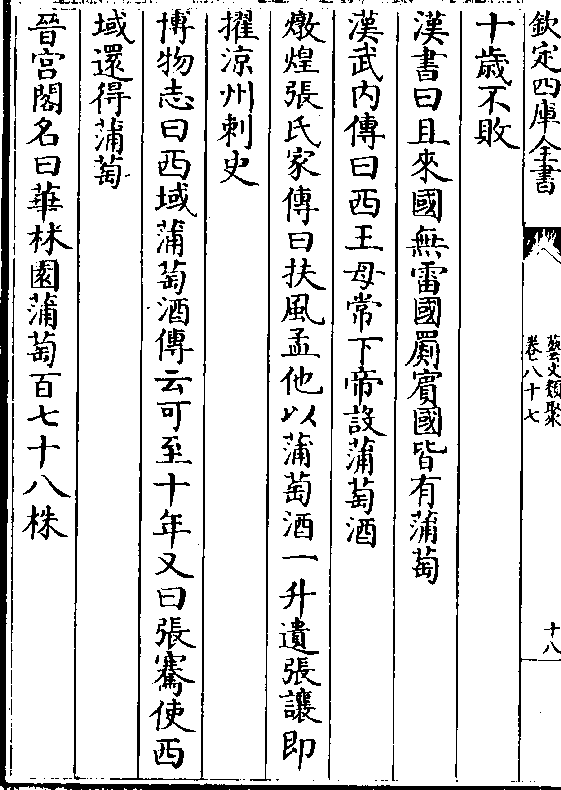 欽定四庫全書
藝文類聚
卷八十七
十八
十歲不敗
漢書曰且來國無雷國罽賓國皆有蒲萄
漢武內傳曰西王母常下帝設蒲萄酒
燉煌張氏家傳曰扶風孟他以蒲萄酒一升遺張讓即
擢涼州刺史
博物志曰西域蒲萄酒傳云可至十年又曰張騫使西
域還得蒲萄
晉宫閣名曰華林園蒲萄百七十八株